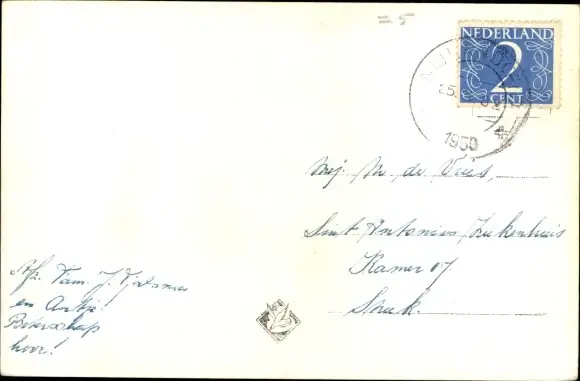 = 5
NEDERLAND
2
CENT
1950
Mej. M. de Vries,
Sint Antonius Ziekenhuis
Kamer 07
Sneek.
Afz. Fam. J.
en Antje!
Beterschap
hoor!